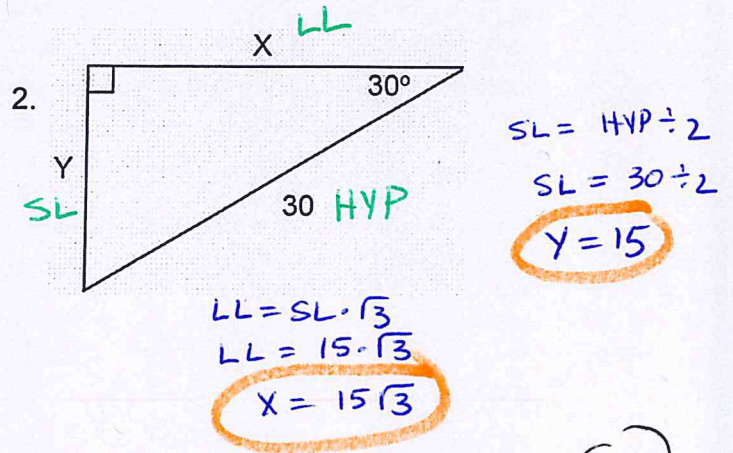 LL
X
2.
30º
Y
SL
30 HYP
SL = HYP ÷ 2
SL = 30 ÷ 2
Y = 15
LL = SL · √3
LL = 15 · √3
X = 15√3